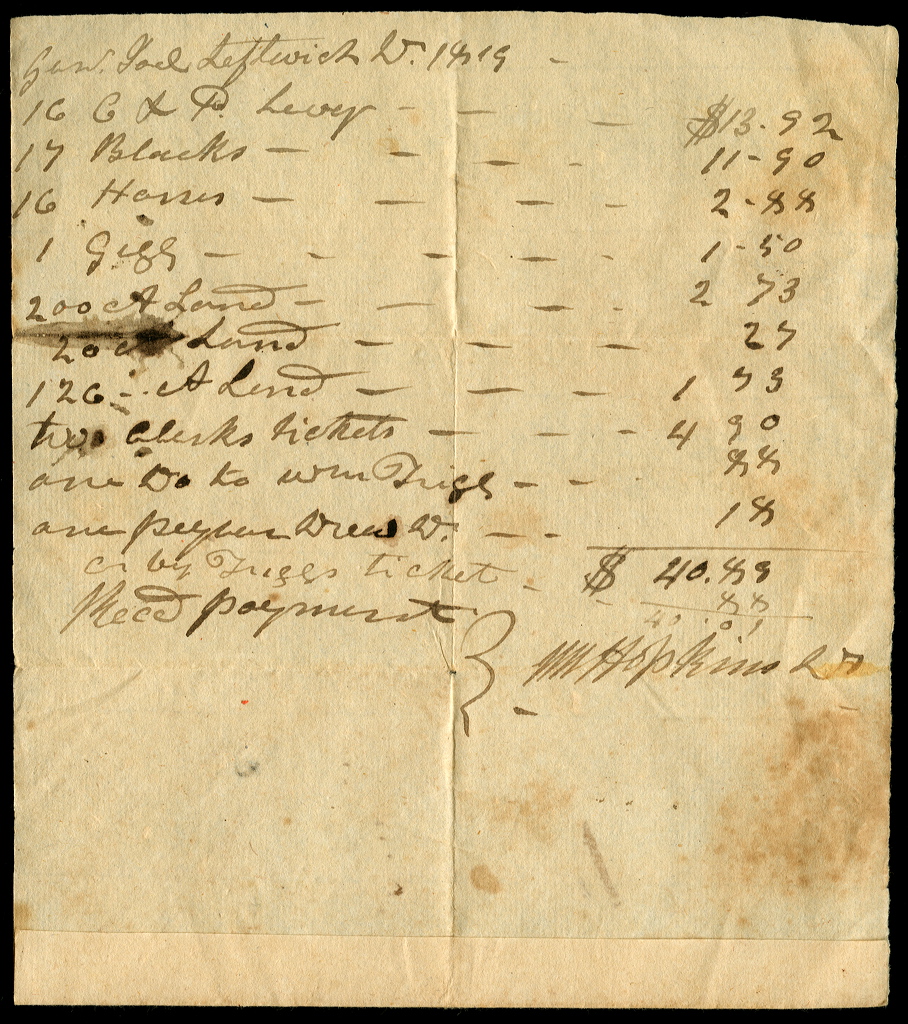 Genl. Joel Leftwich Dr. 1819 -
16 C & P. Levey - - - $13-92
17 Blacks - - - - 11-90
16 Horses - - - - 2-88
1 Gigg - - - - - 1-50
200 A Land - - - . 2 73
20 A Land - - - 27
126 - A Land - - - 1 73
two Clerks tickets - - - 4 90
one Do to Wm Trigg - - . 88
one Drew Dr. - - 18
cr by Triggs ticket - - $ 40.89
88
Recd payment 4 .01
Wm Hopkins D S
-